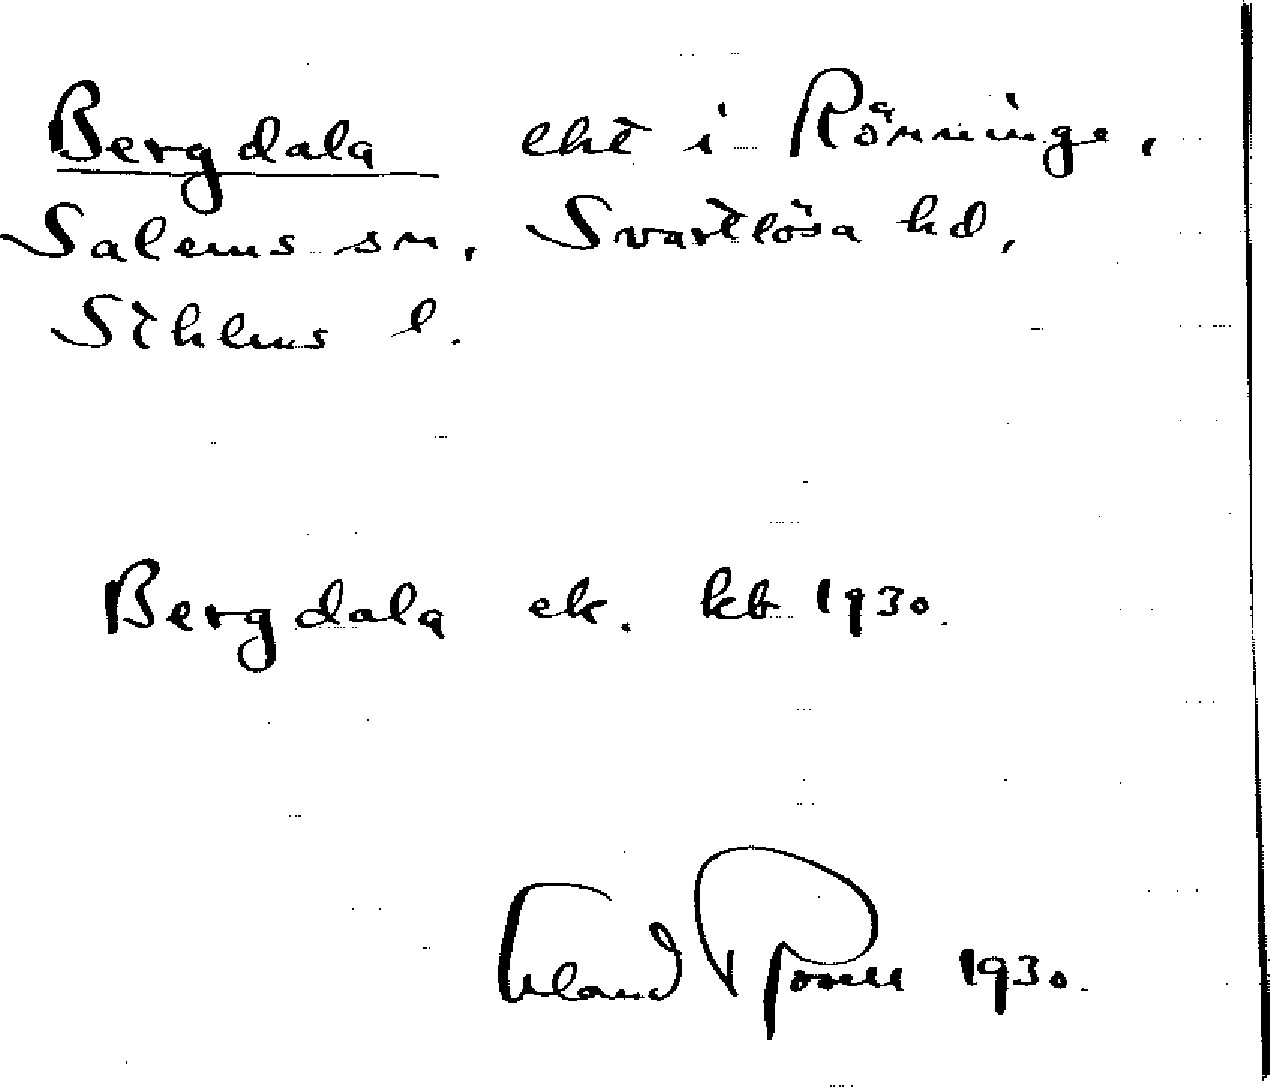 Bergdala eht i Rönninge,
Salems sn, Svartlösa hd,
Sthlms l.
Bergdala ek. kb 1930.
Erland Rosell 1930.